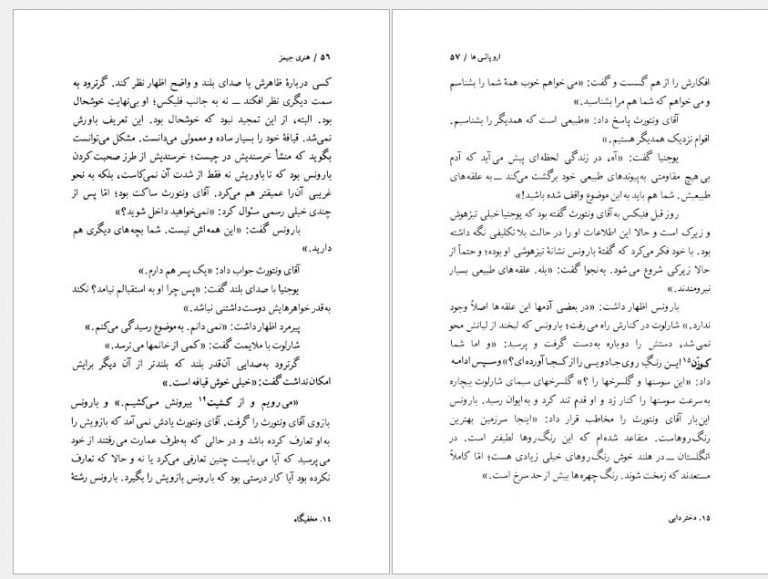 ۵۶ / هنری جیمز
کسی دربارهٔ ظاهرش با صدای بلند و واضح اظهار نظر کند. گرترود به
سمت دیگری نظر افکند ــ نه به جانب فلیکس؛ او بی‌نهایت خوشحال
بود. البته، از این تمجید نبود که خوشحال بود. این تعریف باورش
نمی‌شد. قیافهٔ خود را بسیار ساده و معمولی می‌دانست. مشکل می‌توانست
بگوید که منشأ خرسندیش در چیست؛ خرسندیش از طرز صحبت کردن
بارونس بود که ناباوریش نه فقط از شدت آن نمی‌کاست، بلکه به نحو
غریبی آن‌را عمیقتر هم می‌کرد. آقای ونتورث ساکت بود؛ امّا پس از
چندی خیلی رسمی سئوال کرد: «نمی‌خواهید داخل شوید؟»
بارونس گفت: «این همه‌اش نیست. شما بچه‌های دیگری هم
دارید.»
آقای ونتورث جواب داد: «یک پسر هم دارم.»
یوجنیا با صدای بلند گفت: «پس چرا او به استقبالم نیامد؟ نکند
به‌قدر خواهرهایش دوست‌داشتنی نباشد.»
پیرمرد اظهار داشت: «نمی دانم. به‌موضوع رسیدگی می‌کنم.»
شارلوت با ملایمت گفت: «کمی از خانمها می ترسد.»
گرترود به‌صدایی آن‌قدر بلند که بلندتر از آن دیگر برایش
امکان نداشت گفت: «خیلی خوش قیافه است.»
«می رویم و از کشیت۱۴ بیرونش می‌کشیم.» و بارونس
بازوی آقای ونتورث را گرفت. آقای ونتورث یادش نمی آمد که بازویش را
به‌او تعارف کرده باشد و در حالی که به‌طرف عمارت می رفتند از خود
می پرسید که آیا می بایست چنین تعارفی می‌کرد یا نه و حالا که تعارف
نکرده بود آیا کار درستی بود که بارونس بازویش را بگیرد. بارونس رشتهٔ
۱۴. مخفیگاه
اروپائی ها / ۵۷
افکارش را از هم گسست و گفت: «می خواهم خوب همهٔ شما را بشناسم
و می خواهم که شما هم مرا بشناسید.»
آقای ونتورث پاسخ داد: «طبیعی است که همدیگر را بشناسیم.
اقوام نزدیک همدیگر هستیم.»
یوجنیا گفت: «آه، در زندگی لحظه‌ای پیش می آید که آدم
بی‌هیچ مقاومتی به‌پیوندهای طبیعی خود برگشت می‌کند ــ به علقه‌های
طبیعیش. شما هم باید به این موضوع واقف شده باشید!»
روز قبل فلیکس به آقای ونتورث گفته بود که یوجنیا خیلی تیزهوش
و زیرک است و حالا این اطلاعات او را در حالت بلاتکلیفی نگه داشته
بود. با خود فکر می‌کرد که گفتهٔ بارونس نشانهٔ تیزهوشی او بوده؛ و حتماً از
حالا زیرکی شروع می شود. به‌نجوا گفت: «بله. علقه های طبیعی بسیار
نیرومندند.»
بارونس اظهار داشت: «در بعضی آدمها این علقه‌ها اصلاً وجود
ندارد.» شارلوت در کنارش راه می رفت؛ بارونس که لبخند از لبانش محو
نمی شد، دستش را دوباره به‌دست گرفت و پرسید: «و اما شما
کوزّن۱۵ ایــن رنگ روی جادویــی را از کــجا آورده ای؟» وســپس ادامــه
داد: «این سوسنها و گلسرخها را ؟» گلسرخهای سیمای شارلوت بیچاره
به‌سرعت سوسنها را کنار زد و او قدم تند کرد و به‌ایوان رسید. بارونس
این‌بار آقای ونتورث را مخاطب قرار داد: «اینجا سرزمین بهترین
رنگ‌روهاست. متقاعد شده‌ام که این رنگ‌روها لطیفتر است. در
انگلستان ــ در هلند خوش رنگ‌روهای خیلی زیادی هست؛ امّا کاملاً
مستعدند که زمخت شوند. رنگ چهره‌ها بیش از حد سرخ است.»
۱۵. دختر دایی